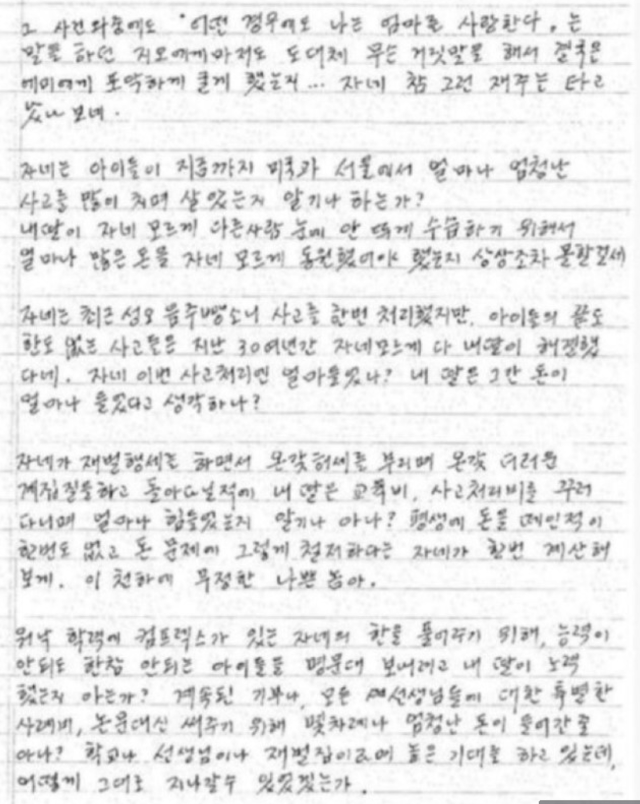 그 사건 와중에도 "어떤 경우에도 나는 엄마를 사랑한다" 는
말을 하던 지오에게마저도 도대체 무슨 거짓말을 해서 결국은
에미에게 포악하게 굴게 했는지... 자네 참 그런 재주는 타고
났나 보네.
자네는 아이들이 지금까지 미국과 서울에서 얼마나 엄청난
사고를 많이 치며 살았는지 알기나 하는가?
내딸이 자네 모르게 다른사람 눈에 안 띄게 수습하기 위해서
얼마나 많은 돈을 자네 모르게 동원했어야 했는지 상상조차 못할걸세
자네는 최근 성오 음주뺑소니 사고를 한번 처리했지만, 아이들의 끝도
한도 없는 사고들은 지난 30여년간 자네모르게 다 내딸이 해결했
다네. 자네 이번 사고처리엔 얼마들었나? 내 딸은 그간 돈이
얼마나 들었다고 생각하나?
자네가 재벌행세를 하면서 온갖허세를 부리며 온갖 더러운
계집질을하고 돌아다닐적에 내 딸은 교육비, 사고처리비를 꾸러
다니며 얼마나 힘들었는지 알기나 아나? 평생에 돈을 떼인적이
한번도 없고 돈 문제에 그렇게 철저하다는 자네가 한번 계산해
보게. 이 천하에 무정한 나쁜 놈아.
워낙 학력에 컴프렉스가 있는 자네의 한을 풀어주기 위해, 능력이
안되도 한참 안되는 아이들을 명문대 보내려고 내 딸이 노력
했는지 아는가? 계속된 기부나, 모든 선생님들에 대한 특별한
사례비, 논문대신 써주기 위해 몇차례나 엄청난 돈이 들어간줄
아나? 학교나 선생님이나 재벌집이라며 높은 기대를 하고 있는데,
어떻게 그대로 지나갈수 있었겠는가.